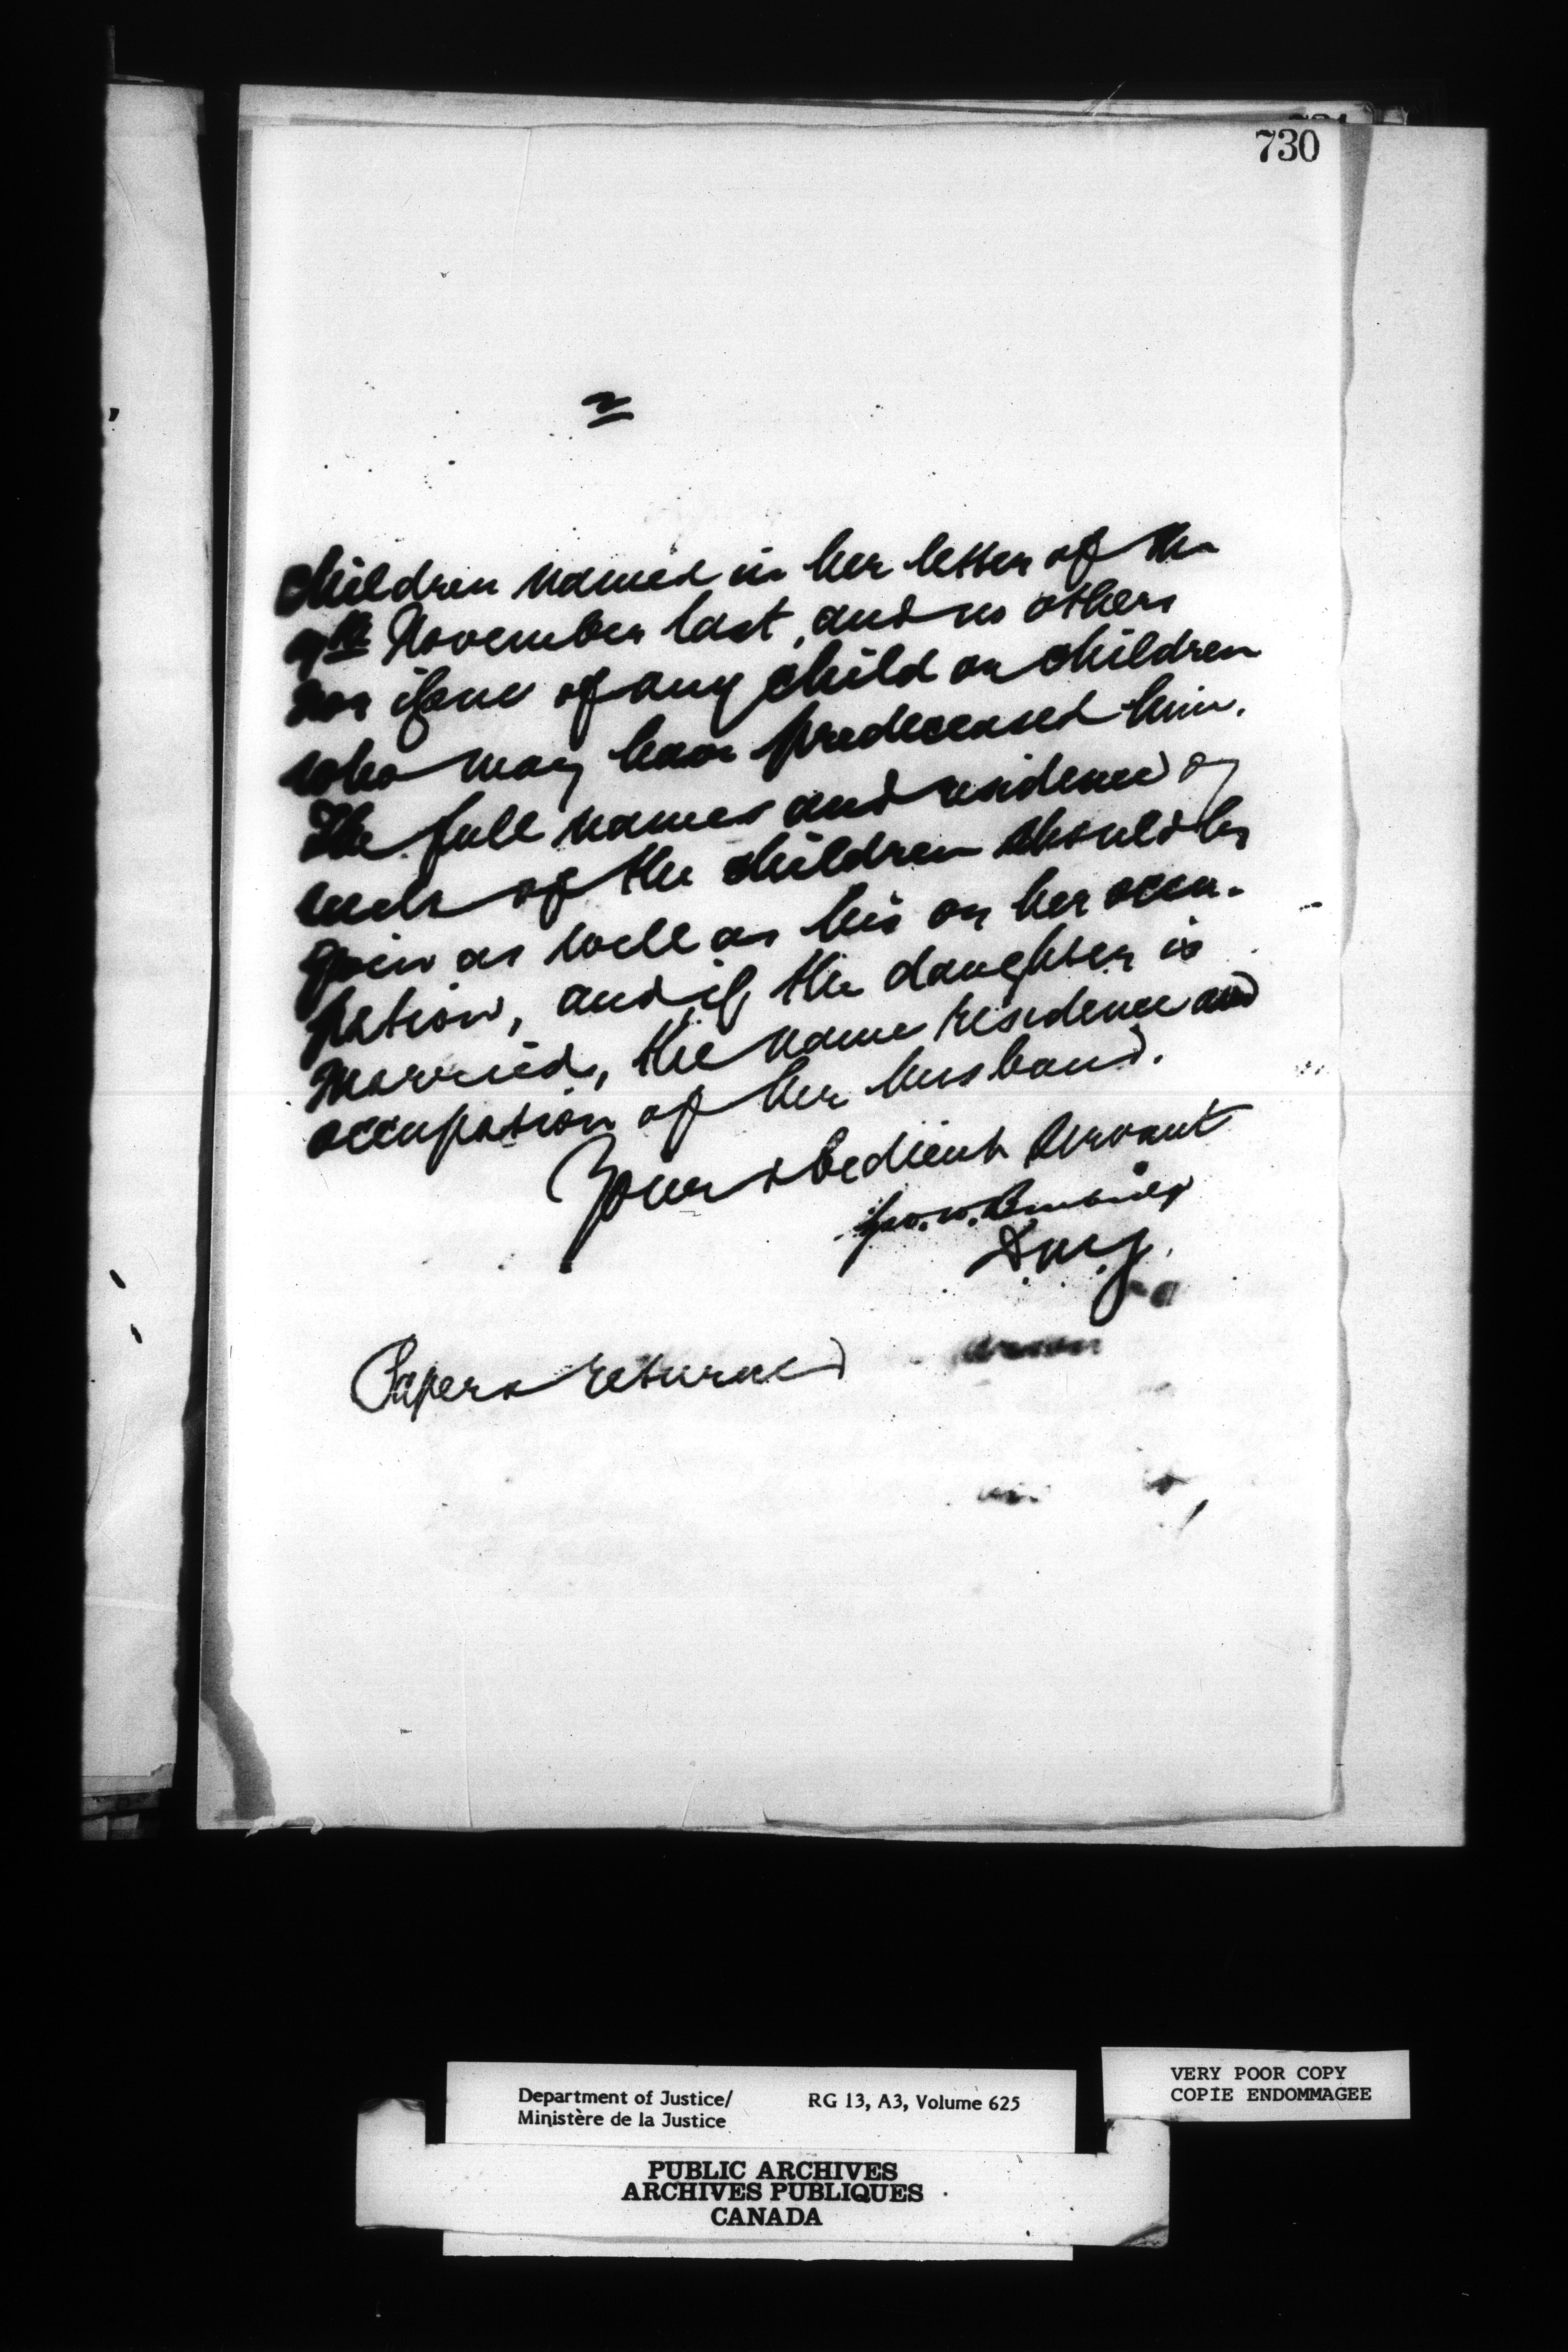 730
2
children named in her letter of the
9th November last, and no others
nor issue of any child or children
who may have predeceased him.
The full names and residence of
each of the children should be
given as well as his or her occu-
pation, and if the daughter is
married, the name residence and
occupation of her husband.
Your obedient Servant
Geo. W. Burbidge
D.M.J.
Papers returned
Department of Justice/ RG 13, A3, Volume 625
Ministère de la Justice
VERY POOR COPY
COPIE ENDOMMAGEE
PUBLIC ARCHIVES
ARCHIVES PUBLIQUES
CANADA